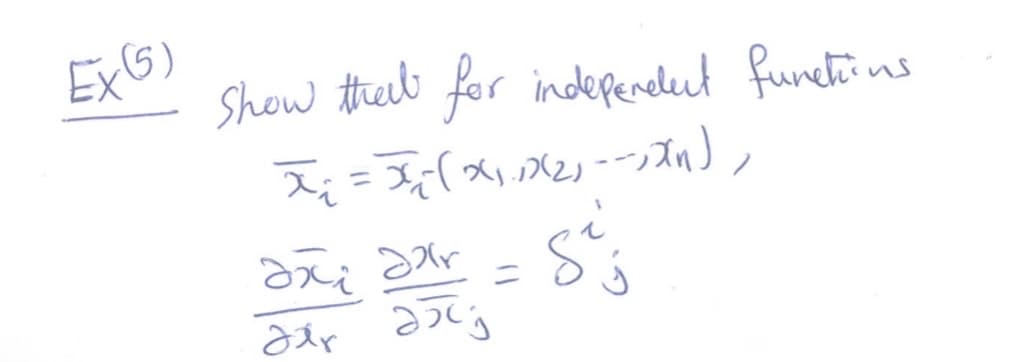 Ex(5) Show that for independent functions
x̄ᵢ = x̄ᵢ(x₁, x₂, ---, xₙ),
∂x̄ᵢ/∂xᵣ ∂xᵣ/∂x̄ⱼ = δⁱⱼ